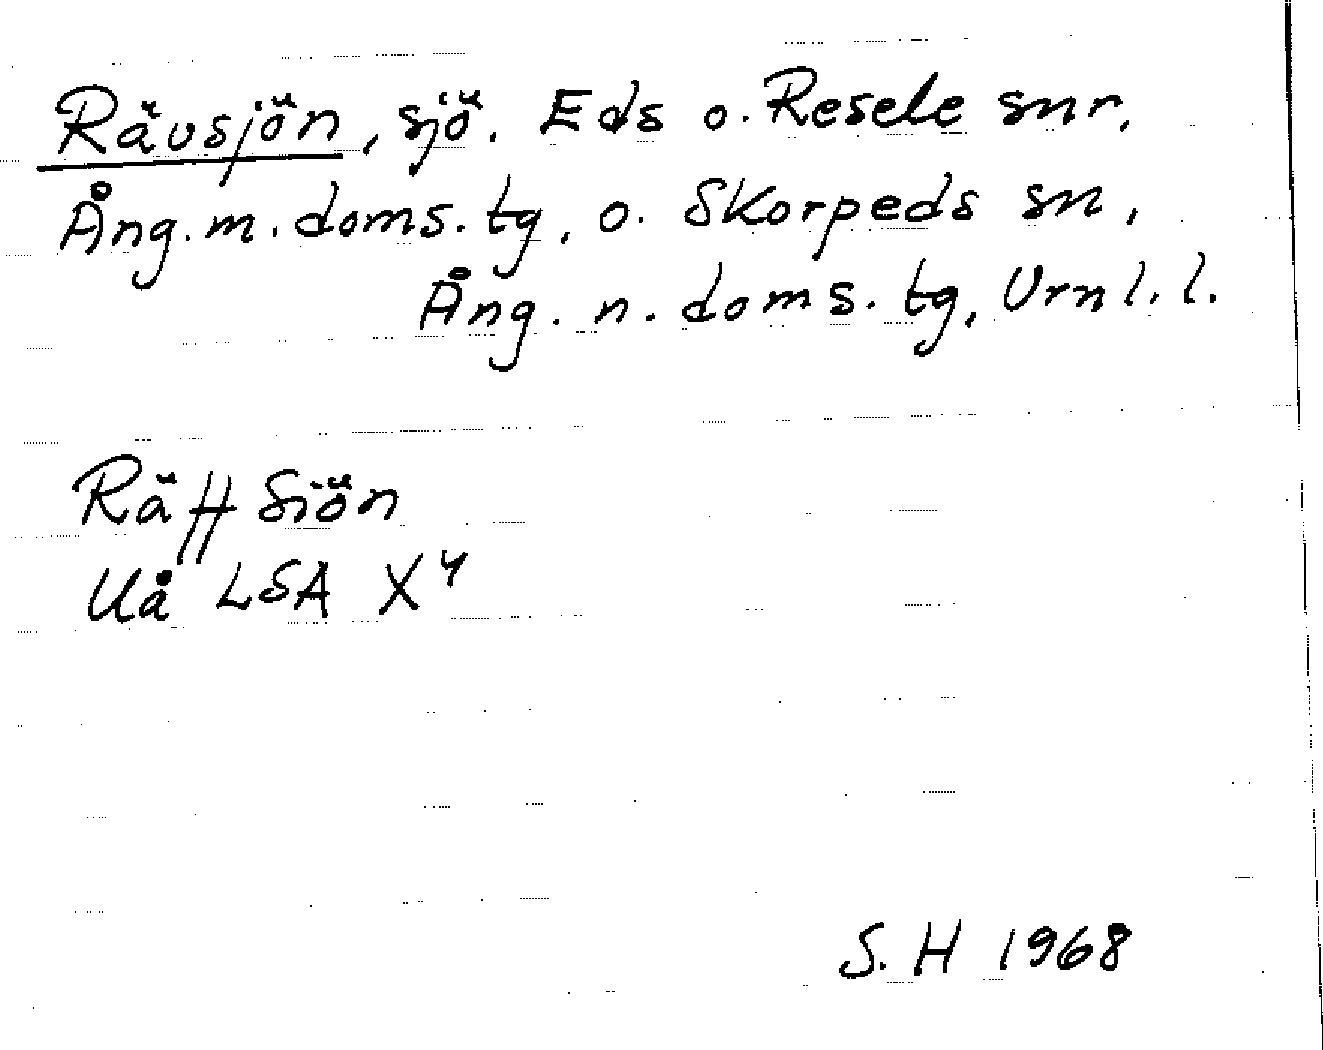 Rävsjön, sjö. Eds o. Resele snr,
Ång. m. doms. tg, o. Skorpeds sn,
Ång. n. doms. tg, Vrnl. l.
Räff Siön
Uå LSA X4
S. H 1968